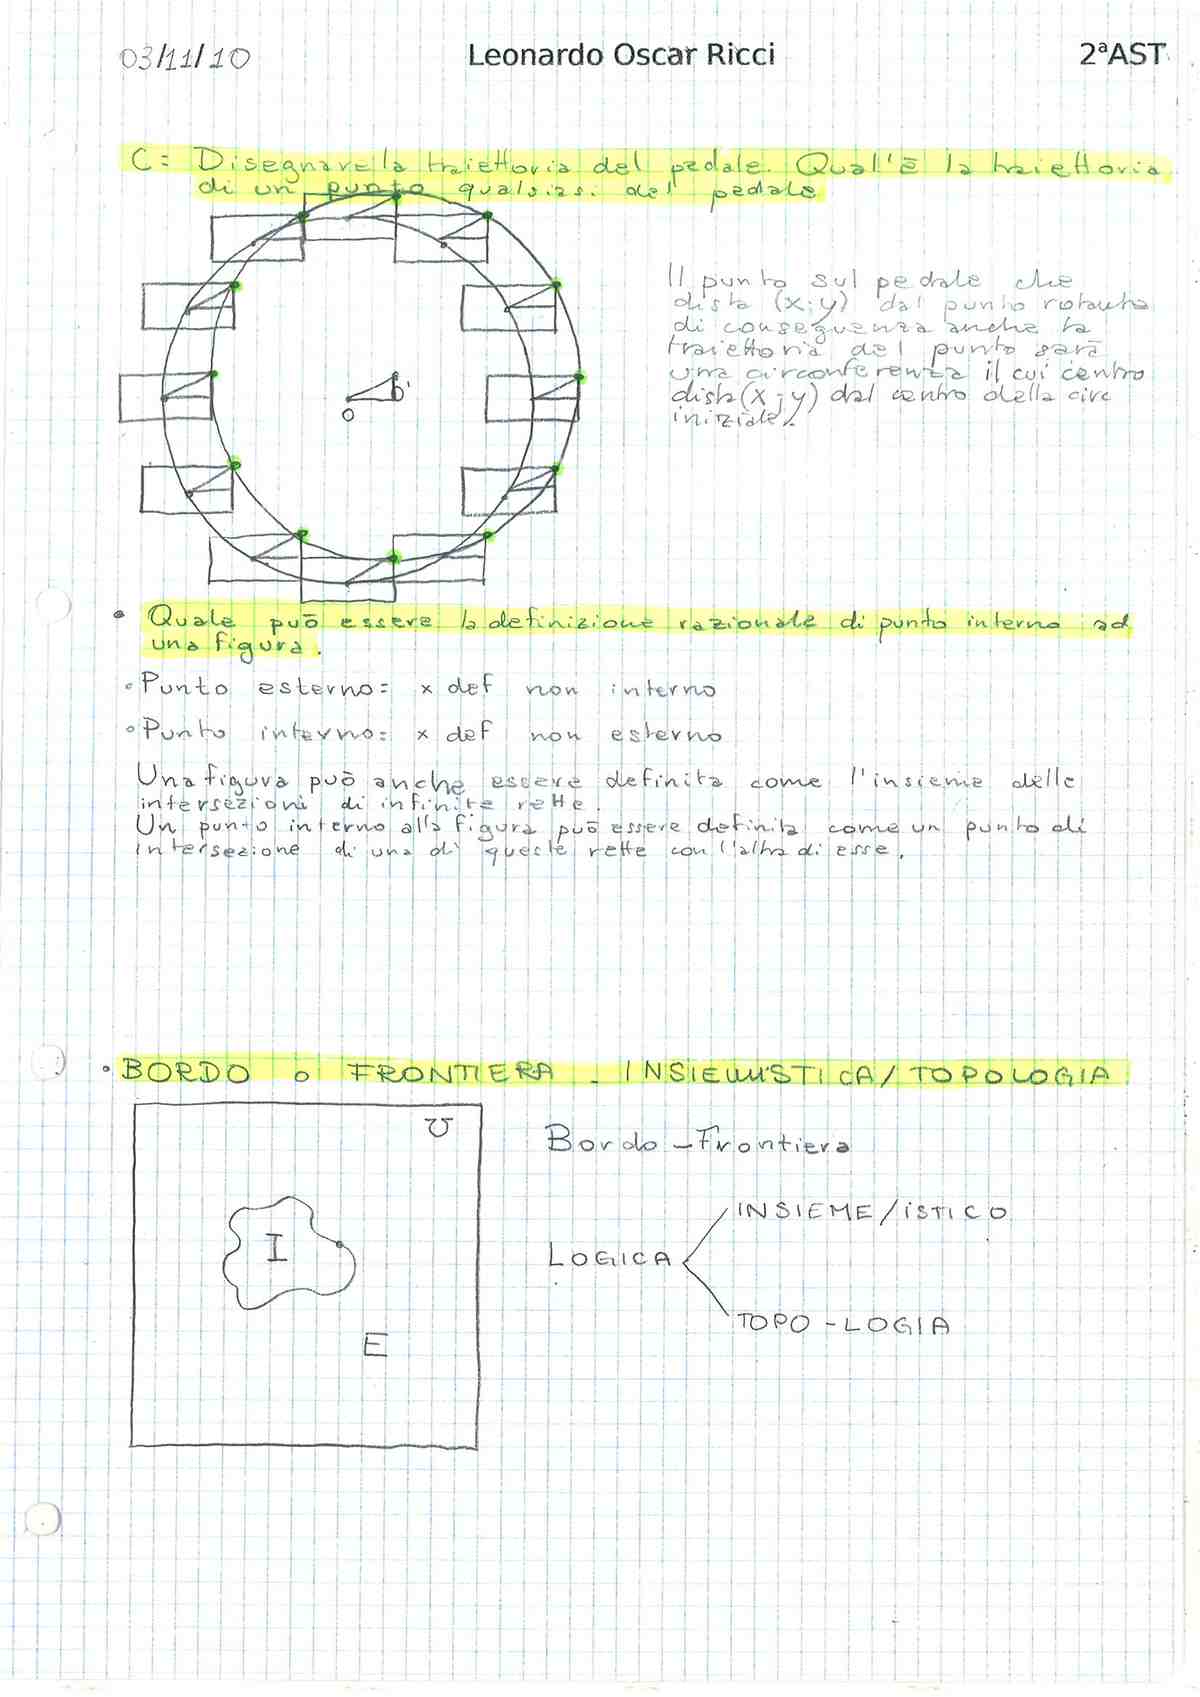 03/11/10
Leonardo Oscar Ricci
2ªAST
C= Disegnare la traiettoria del pedale. Qual'è la traiettoria
di un punto qualsiasi del pedale
Il punto sul pedale che
dista (x;y) dal punto rotante
di conseguenza anche la
traiettoria del punto sarà
una circonferenza il cui centro
dista (x;y) dal centro della circ
iniziale.
O
O'
• Quale può essere la definizione razionale di punto interno ad
una figura.
• Punto esterno= x def non interno
• Punto interno= x def non esterno
Una figura può anche essere definita come l'insieme delle
intersezioni di infinite rette.
Un punto interno alla figura può essere definita come un punto di
intersezione di una di queste rette con l'altra di esse.
• BORDO o FRONTIERA - INSIEMISTICA/TOPOLOGIA
U
I
E
Bordo - Frontiera
LOGICA
INSIEME/ISTICO
TOPO-LOGIA